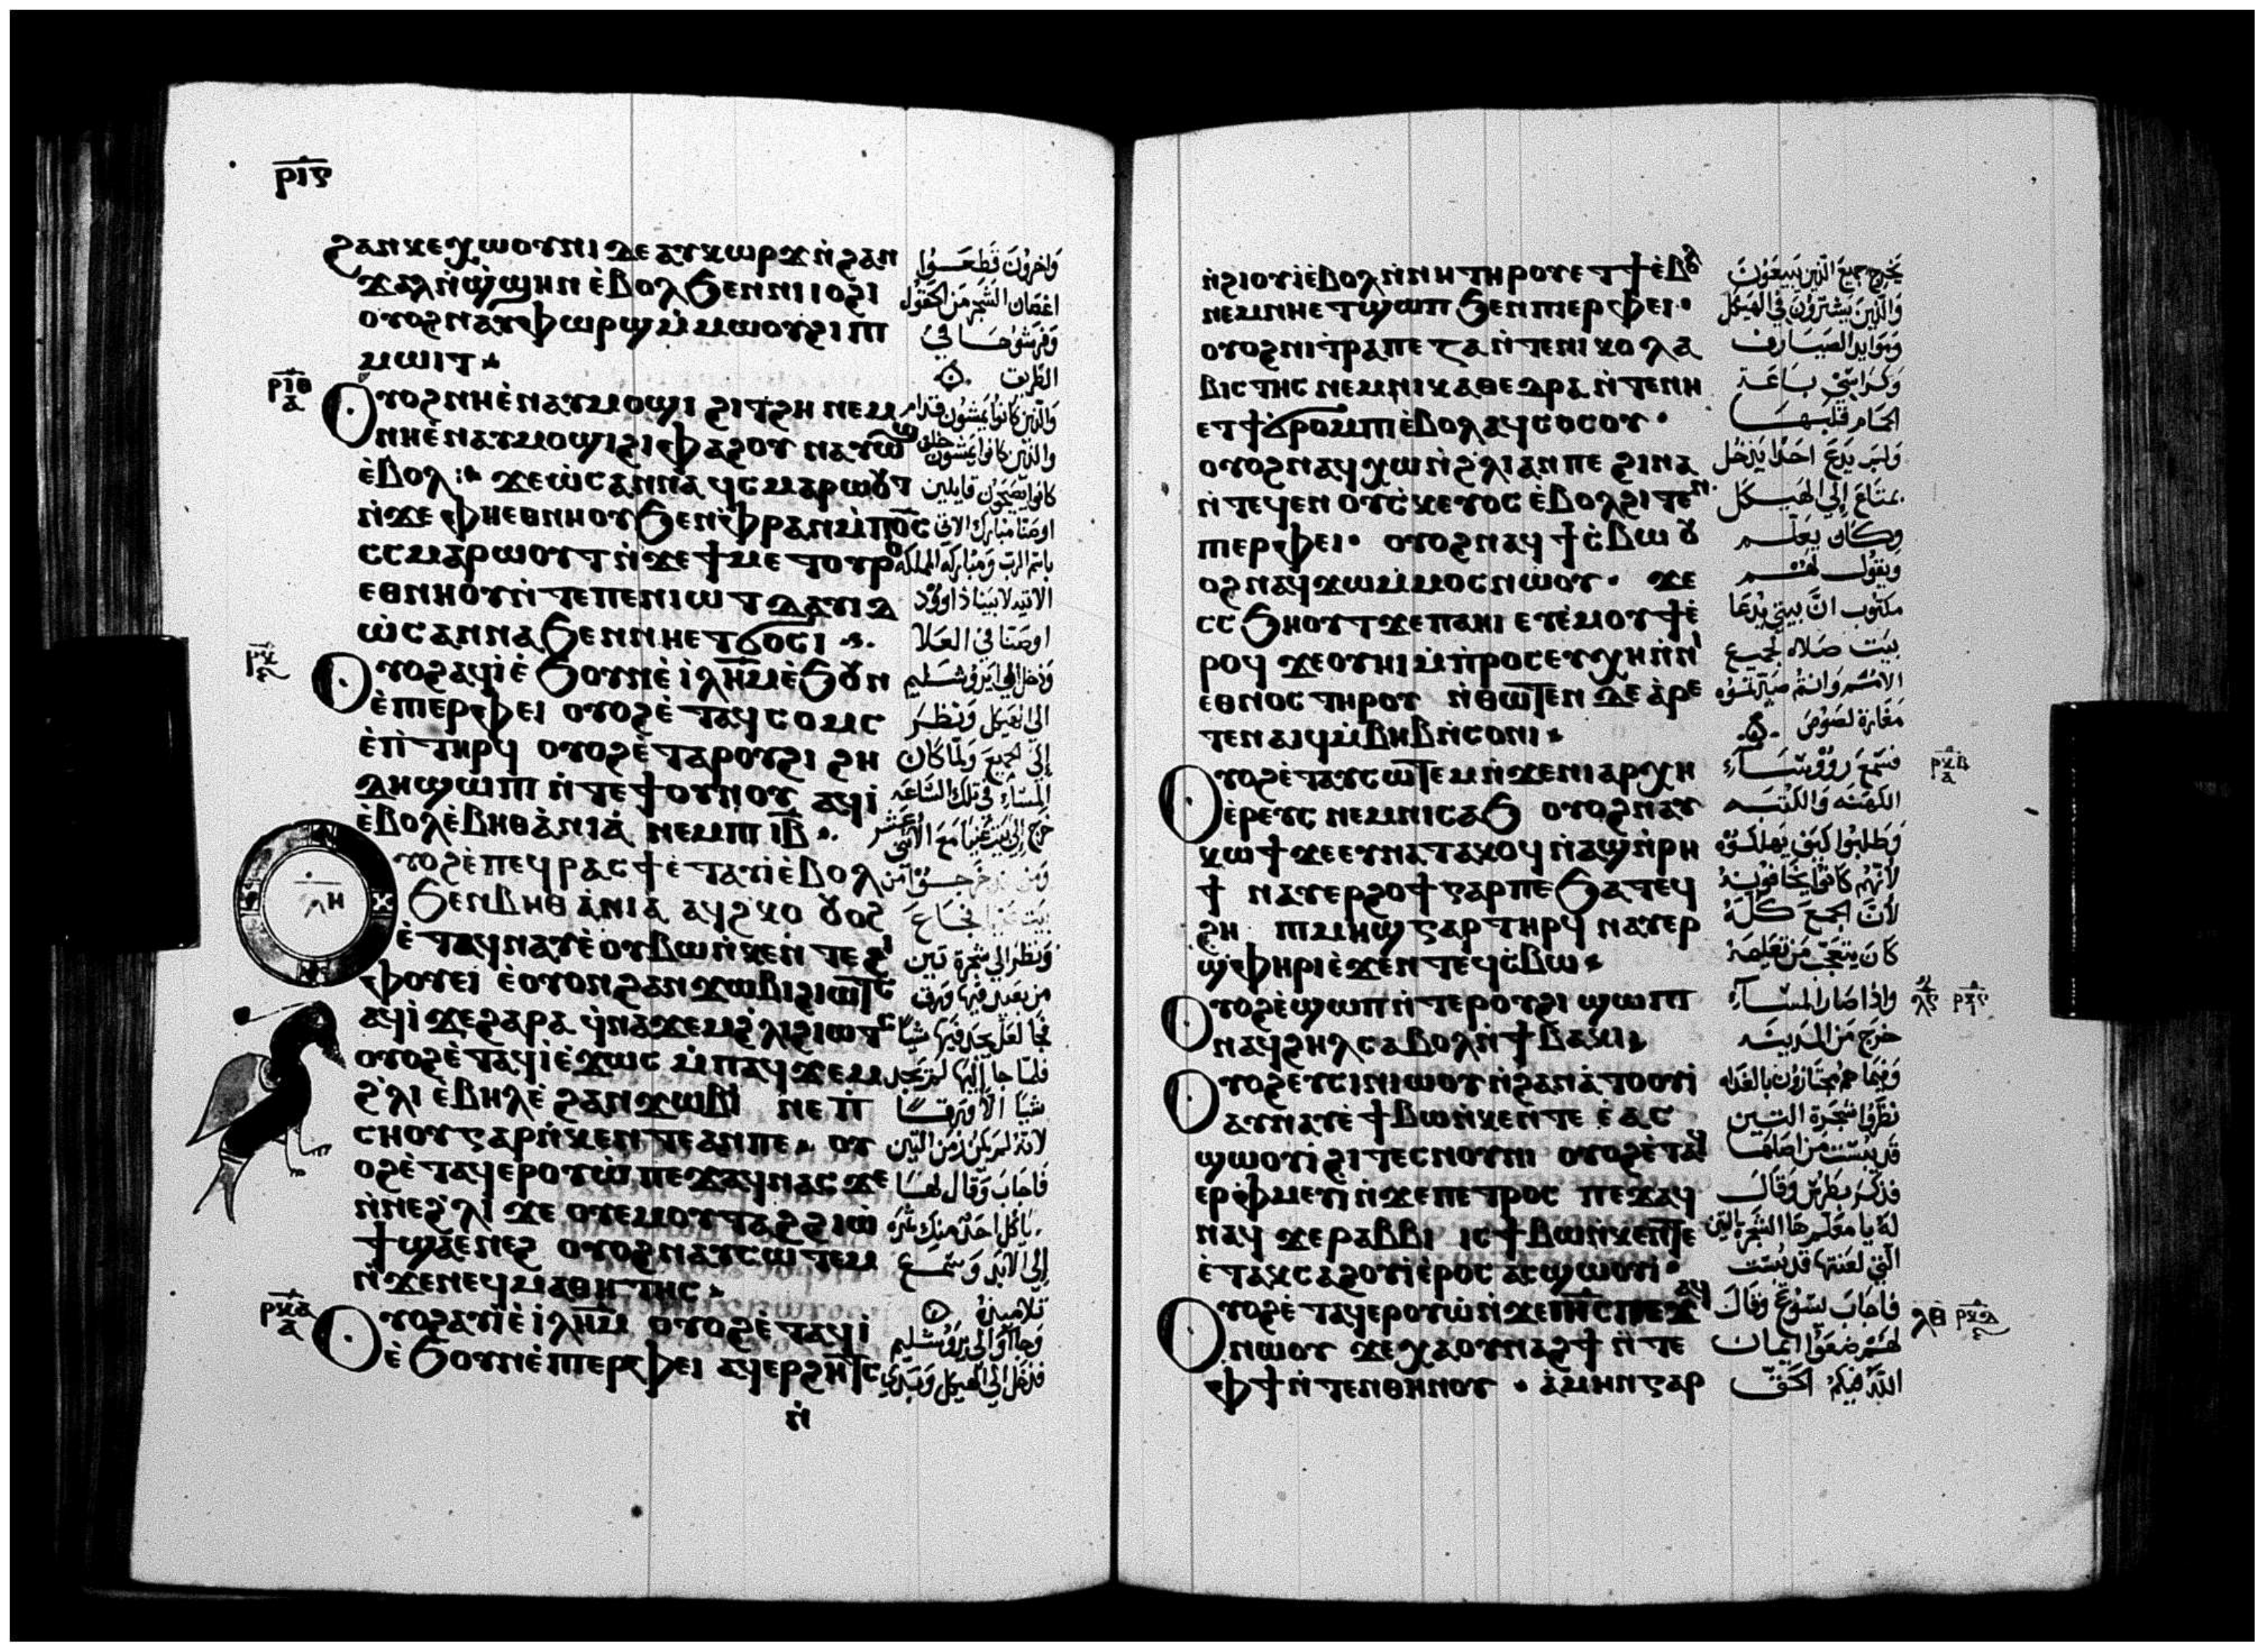 ⲣⲓⲋ
ϩⲁⲛⲕⲉⲭⲱⲟⲩⲛⲓ ⲇⲉ ⲁⲩⲕⲱⲣϫ ⲛ̀ϩⲁⲛ
ϫⲁⲗ ⲛ̀ϣ̀ϣⲏⲛ ⲉ̀ⲃⲟⲗ ϧⲉⲛ ⲛⲓⲓⲟϩⲓ
ⲟⲩⲟϩ ⲛⲁⲩⲫⲱⲣϣ ⲙ̀ⲙⲱⲟⲩ ϩⲓ ⲡⲓ
ⲙⲱⲓⲧ
ⲣⲓⲑ
ⲁ
Ⲟⲩⲟϩ ⲛⲏ ⲉ̀ⲛⲁⲩⲙⲟϣⲓ ϩⲓⲧϩⲏ ⲛⲉⲙ
ⲛⲏ ⲉ̀ⲛⲁⲩⲙⲟϣⲓ ϩⲓⲫⲁϩⲟⲩ ⲛⲁⲩⲱϣ
ⲉ̀ⲃⲟⲗ ϫⲉ ⲱ̀ⲥⲁⲛⲛⲁ ϥⲥⲙⲁⲣⲱⲟⲩⲧ
ⲛ̀ϫⲉ ⲫⲏⲉⲑⲛⲏⲟⲩ ϧⲉⲛ ⲫ̀ⲣⲁⲛ ⲙ̀ⲡⲟ̅ⲥ̅
ⲥⲥⲙⲁⲣⲱⲟⲩⲧ ⲛ̀ϫⲉ ϯⲙⲉⲧⲟⲩⲣⲟ
ⲉⲑⲛⲏⲟⲩ ⲛ̀ⲧⲉ ⲡⲉⲛⲓⲱⲧ ⲇⲁⲩⲓⲇ
ⲱ̀ⲥⲁⲛⲛⲁ ϧⲉⲛ ⲛⲏⲉⲧϭⲟⲥⲓ
ⲣⲕ
Ⲟⲩⲟϩ ⲁϥⲓ̀ ⲉ̀ϧⲟⲩⲛ ⲉ̀ ⲓ̀ⲗ̅ⲏ̅ⲙ̅ ⲉ̀ϧⲟⲩⲛ
ⲉ̀ⲡⲓⲉⲣⲫⲉⲓ ⲟⲩⲟϩ ⲉ̀ⲧⲁϥⲥⲟⲙⲥ
ⲉ̀ⲡⲓⲧⲏⲣϥ ⲟⲩⲟϩ ⲉ̀ⲧⲁ ⲣⲟⲩϩⲓ ϩⲏ
ⲇⲏ ϣⲱⲡⲓ ⲛ̀ⲧⲉ ϯⲟⲩⲛⲟⲩ ⲁϥⲓ̀
ⲉ̀ⲃⲟⲗ ⲉ̀ⲃⲏⲑⲁ̀ⲛⲓⲁ̀ ⲛⲉⲙ ⲡⲓⲓ̅ⲃ̅
ⲗⲏ
Ⲟⲩⲟϩ ⲉ̀ⲡⲉϥⲣⲁⲥϯ ⲉ̀ⲧⲁⲩⲓ̀ ⲉ̀ⲃⲟⲗ
ϧⲉⲛ ⲃⲏⲑⲁ̀ⲛⲓⲁ ⲁϥϩⲕⲟ ⲟⲩⲟϩ
ⲉ̀ⲧⲁϥⲛⲁⲩ ⲉ̀ⲟⲩⲃⲱ ⲛ̀ⲕⲉⲛⲧⲉ ϩⲓ
ⲫⲟⲩⲉⲓ ⲉ̀ⲟⲩⲟⲛ ϩⲁⲛϫⲱⲃⲓ ϩⲓⲱⲧⲥ
ⲁϥⲓ̀ ϫⲉ ϩⲁⲣⲁ ϥ̀ⲛⲁϫⲉⲙ ϩ̀ⲗⲓ ϩⲓⲱⲧⲥ
ⲟⲩⲟϩ ⲉ̀ⲧⲁϥⲓ̀ ⲉ̀ϫⲱⲥ ⲙ̀ⲡⲁϥϫⲉⲙ
ϩ̀ⲗⲓ ⲉ̀ⲃⲏⲗ ⲉ̀ ϩⲁⲛϫⲱⲃⲓ ⲛⲉ ⲡ̀
ⲥⲏⲟⲩ ⲅⲁⲣ ⲛ̀ⲕⲉⲛⲧⲉ ⲁⲛ ⲡⲉ ⲟⲩ
ⲟϩ ⲉ̀ⲧⲁϥⲉⲣⲟⲩⲱ̀ ⲡⲉϫⲁϥ ⲛⲁⲥ ϫⲉ
ⲛ̀ⲛⲉ ϩ̀ⲗⲓ ϫⲉ ⲟⲩⲉⲙ ⲟⲩⲧⲁϩ ϩⲓⲱ
ϯ ϣⲁⲉⲛⲉϩ ⲟⲩⲟϩ ⲛⲁⲩⲥⲱⲧⲉⲙ
ⲛ̀ϫⲉ ⲛⲉϥⲙⲁⲑⲏⲧⲏⲥ
ⲣⲕⲁ
ⲁ
Ⲟⲩⲟϩ ⲁⲩⲓ̀ ⲉ̀ ⲓ̀ⲗ̅ⲏ̅ⲙ̅ ⲟⲩⲟϩ ⲉ̀ⲧⲁϥⲓ̀
ⲉ̀ϧⲟⲩⲛ ⲉ̀ⲡⲓⲉⲣⲫⲉⲓ ⲁϥⲉⲣϩⲏⲧⲥ
ⲛ̀
واخرون قطعوا
اغصان الشجر من الحقول
وفرشوها في
الطريق
والذين كانوا يمشون قدام
والذين كانوا يمشون خلف
كانوا يصيحون قايلين
اوصنا مبارك الاتي
باسم الرب ومباركه المملكه
الاتيه لابينا داوود
اوصنا في العلا
ودخل الي ايروشليم
الي الهيكل ونظر
الي الجميع ولما كان
المساء في تلك الساعه
خرج الي بيت عنيا مع الاثني عشر
ونظر الي شجرة تين
من بعيد فيها ورق
فجا لعل يجد فيها شيا
فلما جا اليها لم يجد
شيا الا ورقا
لانه لم يكن زمن التين
فاجاب وقال لها
الي الابد وسمع
تلاميذه
وجااوا الي يروشليم
فدخل الي الهيكل وبدي
ⲛ̀ϩⲓⲟⲩⲓ̀ ⲉ̀ⲃⲟⲗ ⲛ̀ⲛⲏ ⲧⲏⲣⲟⲩ ⲉⲧϯ ⲉ̀ⲃⲟⲗ
ⲛⲉⲙ ⲛⲏ ⲉⲧϣⲱⲡ ϧⲉⲛ ⲡⲓⲉⲣⲫⲉⲓ
ⲟⲩⲟϩ ⲛⲓⲧ̀ⲣⲁⲡⲉⲍⲁ ⲛ̀ⲧⲉ ⲛⲓⲕⲟⲗⲗⲁ
ⲃⲓⲥⲧⲏⲥ ⲛⲉⲙ ⲛⲓⲕⲁⲑⲉⲇⲣⲁ ⲛ̀ⲧⲉ ⲛⲏ
ⲉⲧϯ ϭⲣⲟⲙⲡⲓ ⲉ̀ⲃⲟⲗ ⲁϥϥⲟⲥⲟⲩ
ⲟⲩⲟϩ ⲛⲁϥⲭⲱ ⲛ̀ϩ̀ⲗⲓ ⲁⲛ ⲡⲉ ϩⲓⲛⲁ
ⲛ̀ⲧⲉϥⲉⲛ ⲟⲩⲥ̀ⲕⲉⲩⲟⲥ ⲉ̀ⲃⲟⲗ ϩⲓⲧⲉⲛ
ⲡⲓⲉⲣⲫⲉⲓ ⲟⲩⲟϩ ⲛⲁϥϯⲥ̀ⲃⲱ ⲟⲩ
ⲟϩ ⲛⲁϥϫⲱ ⲙ̀ⲙⲟⲥ ⲛⲱⲟⲩ ϫⲉ
ⲥⲥϧⲏⲟⲩⲧ ϫⲉ ⲡⲁⲏⲓ ⲉⲩⲉ̀ⲙⲟⲩϯ ⲉ̀
ⲣⲟϥ ϫⲉ ⲟⲩⲏⲓ ⲙ̀ⲡ̀ⲣⲟⲥⲉⲩⲭⲏ ⲛ̀ⲛⲓ
ⲉⲑⲛⲟⲥ ⲧⲏⲣⲟⲩ ⲛ̀ⲑⲱⲧⲉⲛ ⲇⲉ ⲁ̀ⲣⲉ
ⲧⲉⲛⲁⲓϥ ⲙ̀ⲃⲏⲃ ⲛ̀ⲥⲟⲛⲓ
Ⲟⲩⲟϩ ⲉ̀ⲧⲁⲩⲥⲱⲧⲉⲙ ⲛ̀ϫⲉ ⲛⲓⲁⲣⲭⲏ
ⲉ̀ⲣⲉⲩⲥ ⲛⲉⲙ ⲛⲓⲥⲁϧ ⲟⲩⲟϩ ⲛⲁⲩ
ⲕⲱϯ ϫⲉ ⲉⲩⲛⲁⲧⲁⲕⲟϥ ⲛ̀ⲁϣ ⲛ̀ⲣⲏ
ϯ ⲛⲁⲩⲉⲣϩⲟϯ ⲅⲁⲣ ⲡⲉ ϧⲁⲧⲉϥ
ϩⲏ ⲡⲓⲙⲏϣ ⲅⲁⲣ ⲧⲏⲣϥ ⲛⲁⲩⲉⲣ
ϣ̀ⲫⲏⲣⲓ ⲉ̀ϫⲉⲛ ⲧⲉϥⲥ̀ⲃⲱ
Ⲟⲩⲟϩ ⲉ̀ϣⲱⲡ ⲛ̀ⲧⲉ ⲣⲟⲩϩⲓ ϣⲱⲡⲓ
ⲛⲁϥϩⲏⲗ ⲥⲁⲃⲟⲗ ⲛ̀ϯⲃⲁⲕⲓ
Ⲟⲩⲟϩ ⲉⲩⲥⲓⲛⲓⲱⲟⲩ ⲛ̀ϩⲁⲛⲁ̀ⲧⲟⲟⲩⲓ̀
ⲁⲩⲛⲁⲩ ⲉ̀ϯⲃⲱ ⲛ̀ⲕⲉⲛⲧⲉ ⲉ̀ⲁⲥ
ϣⲱⲟⲩⲓ̀ ϩⲓ ⲧⲉⲥⲛⲟⲩⲛⲓ ⲟⲩⲟϩ ⲉ̀ⲧⲁϥ
ⲉⲣⲫ̀ⲙⲉⲩⲓ̀ ⲛ̀ϫⲉ ⲡⲉⲧⲣⲟⲥ ⲡⲉϫⲁϥ
ⲛⲁϥ ϫⲉ ⲣⲁⲃⲃⲓ ⲓⲥ ϯⲃⲱ ⲛ̀ⲕⲉⲛⲧⲉ
ⲉ̀ⲧⲁⲕⲥⲁϩⲟⲩⲓ̀ ⲉ̀ⲣⲟⲥ ⲁⲥϣⲱⲟⲩⲓ
Ⲟⲩⲟϩ ⲉ̀ⲧⲁϥⲉⲣⲟⲩⲱ̀ ⲛ̀ϫⲉ ⲓⲏ̅ⲥ̅ ⲡⲉϫⲁϥ
ⲛⲱⲟⲩ ϫⲉ ⲭⲁ ⲟⲩⲛⲁϩϯ ⲛ̀ⲧⲉ
ⲫϯ ϧⲉⲛ ⲑⲏⲛⲟⲩ ⲁ̀ⲙⲏⲛ ⲅⲁⲣ
يخرج جميع الذين يبيعون
والذين يشترون في الهيكل
وموايد الصيارف
وكراسي باعة
الحمام قلبها
ولم يدع احدا يدخل
بمتاع الي الهيكل
وكان يعلم
ويقول لهم
مكتوب ان بيتي يدعا
بيت صلاه لجميع
الامم وانتم صيرتموه
مغارة لصوص
فسمع رووساء
الكهنه والكتبه
وطلبوا كيف يهلكوه
لانهم كانوا يخافونه
لان الجمع كله
كان يتعجب من تعليمه
واذا صار المساء
خرج من المدينه
وفيما هم مجتازون بالغداه
نظروا شجرة التين
قد يبست من اصلها
فذكر بطرس وقال
له يا معلم ها الشجرة التين
التي لعنتها قد يبست
فاجاب يسوع وقال
لهم ضعوا ايمان
الله فيكم الحق
ⲣⲕⲃ
ⲁ
ⲗⲑ
ⲣⲕⲇ